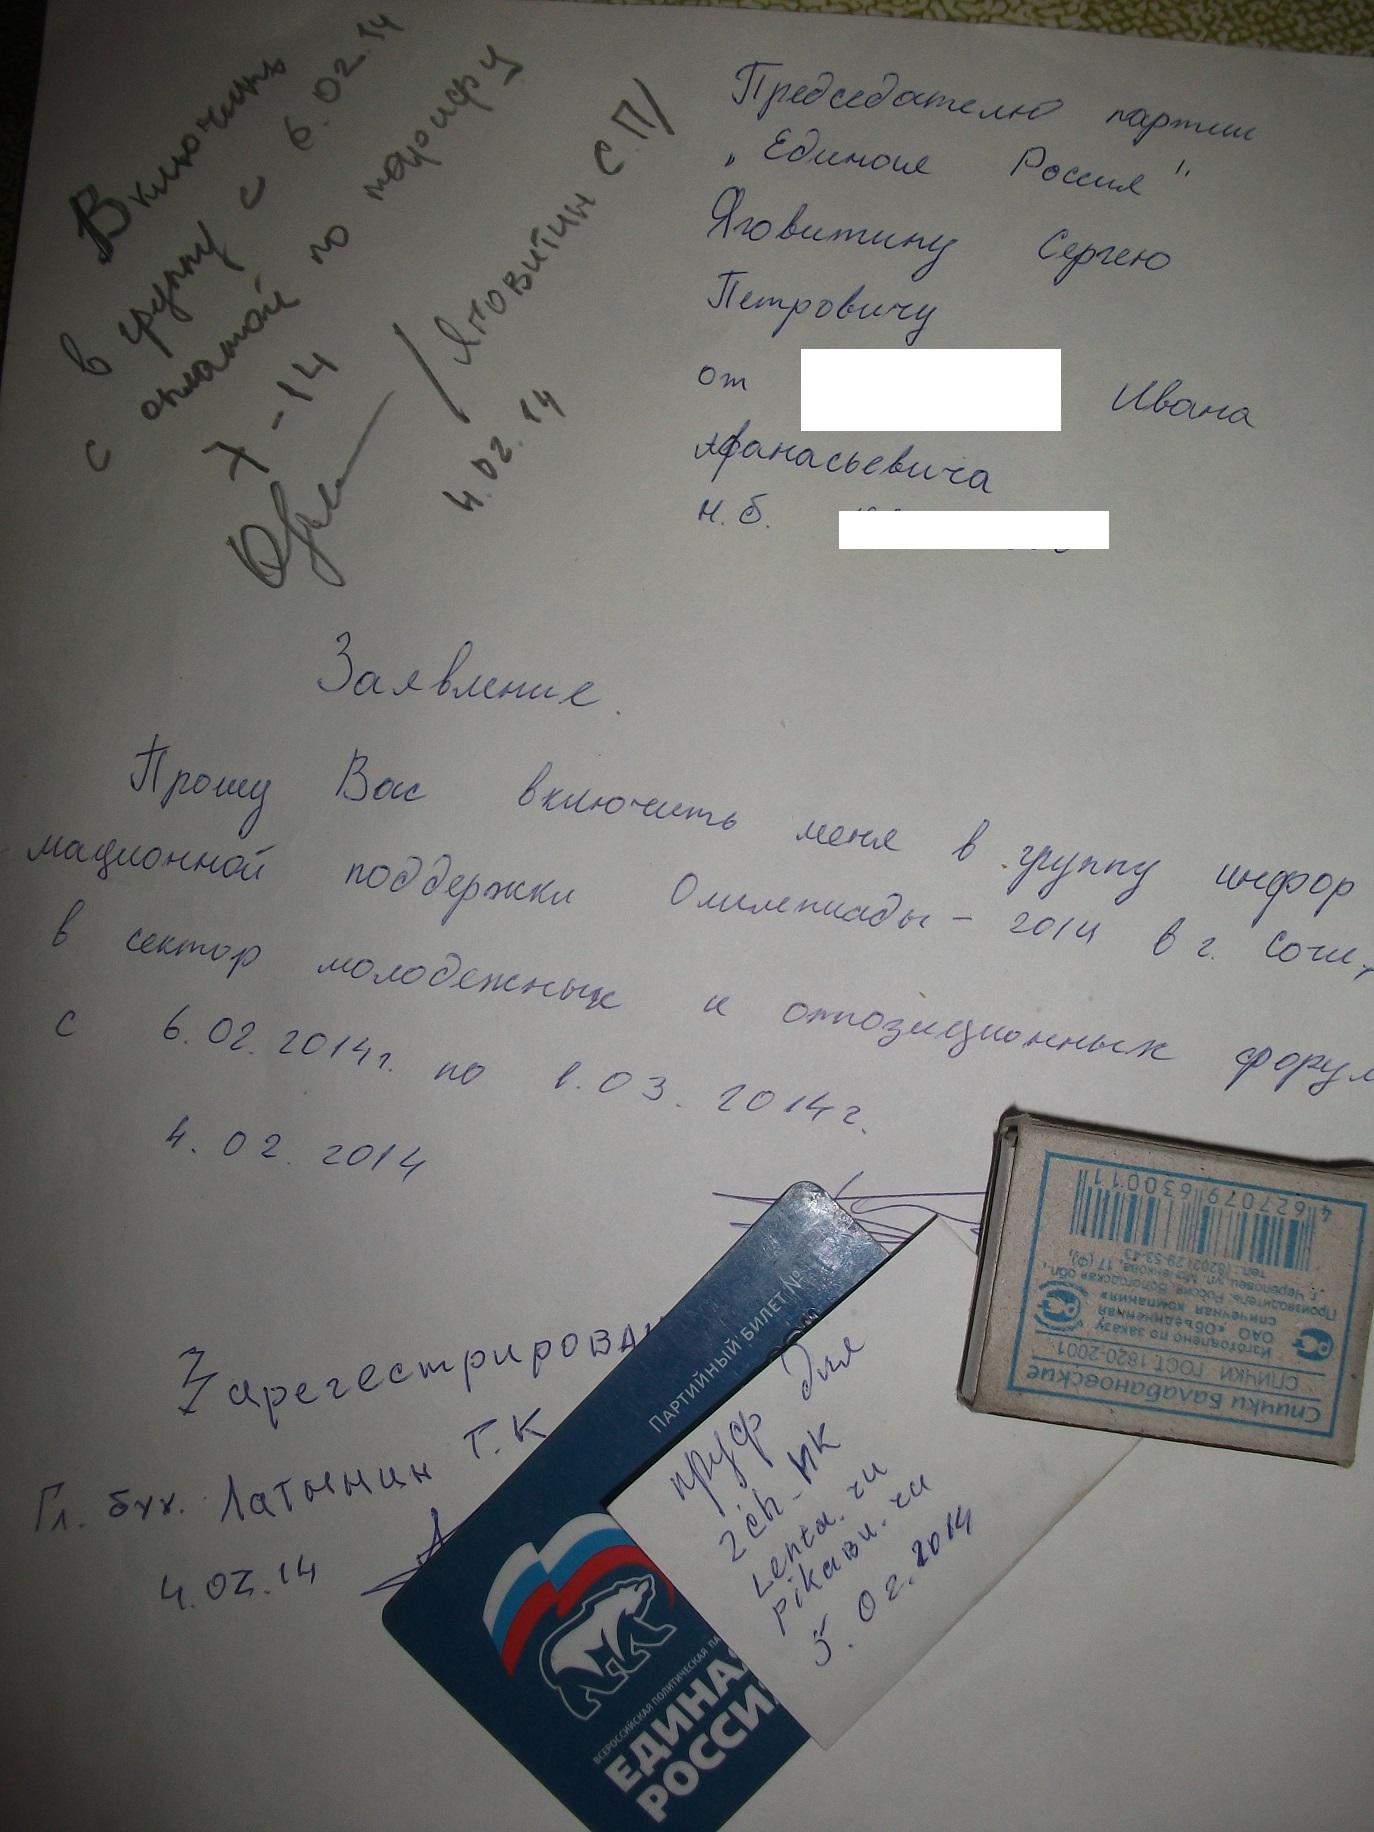 Включить
в группу с 6.02.14
с оплатой по тарифу
X-14
/Яговитин С.П/
4.02.14
Председателю партии
„Единая Россия"
Яговитину Сергею
Петровичу
от Ивана
Афанасьевича
н.б.
Заявление.
Прошу Вас включить меня в группу инфор
мационной поддержки Олимпиады-2014 в г. Сочи,
в сектор молодежных и оппозиционных форум
с 6.02.2014г. по 1.03.2014г.
4.02.2014
Зарегестрирован
Гл. бух. Латынин Г.К
4.02.14
ПАРТИЙНЫЙ БИЛЕТ №
ВСЕРОССИЙСКАЯ ПОЛИТИЧЕСКАЯ ПА
ЕДИНАЯ
РОССИЯ
пруф для
2ch-hk
Lenta.ru
pikabu.ru
5.02.2014
Спички Балабановские
СПИЧКИ ГОСТ 1820-2001
Изготовлено по заказу
ОАО «Объединенная
спичечная компания»
Производитель: Россия, Вологодская обл.,
г. Череповец, ул. Моченкова, 17 (Ф),
Тел.: (8202) 29-53-43
4 627079 630011